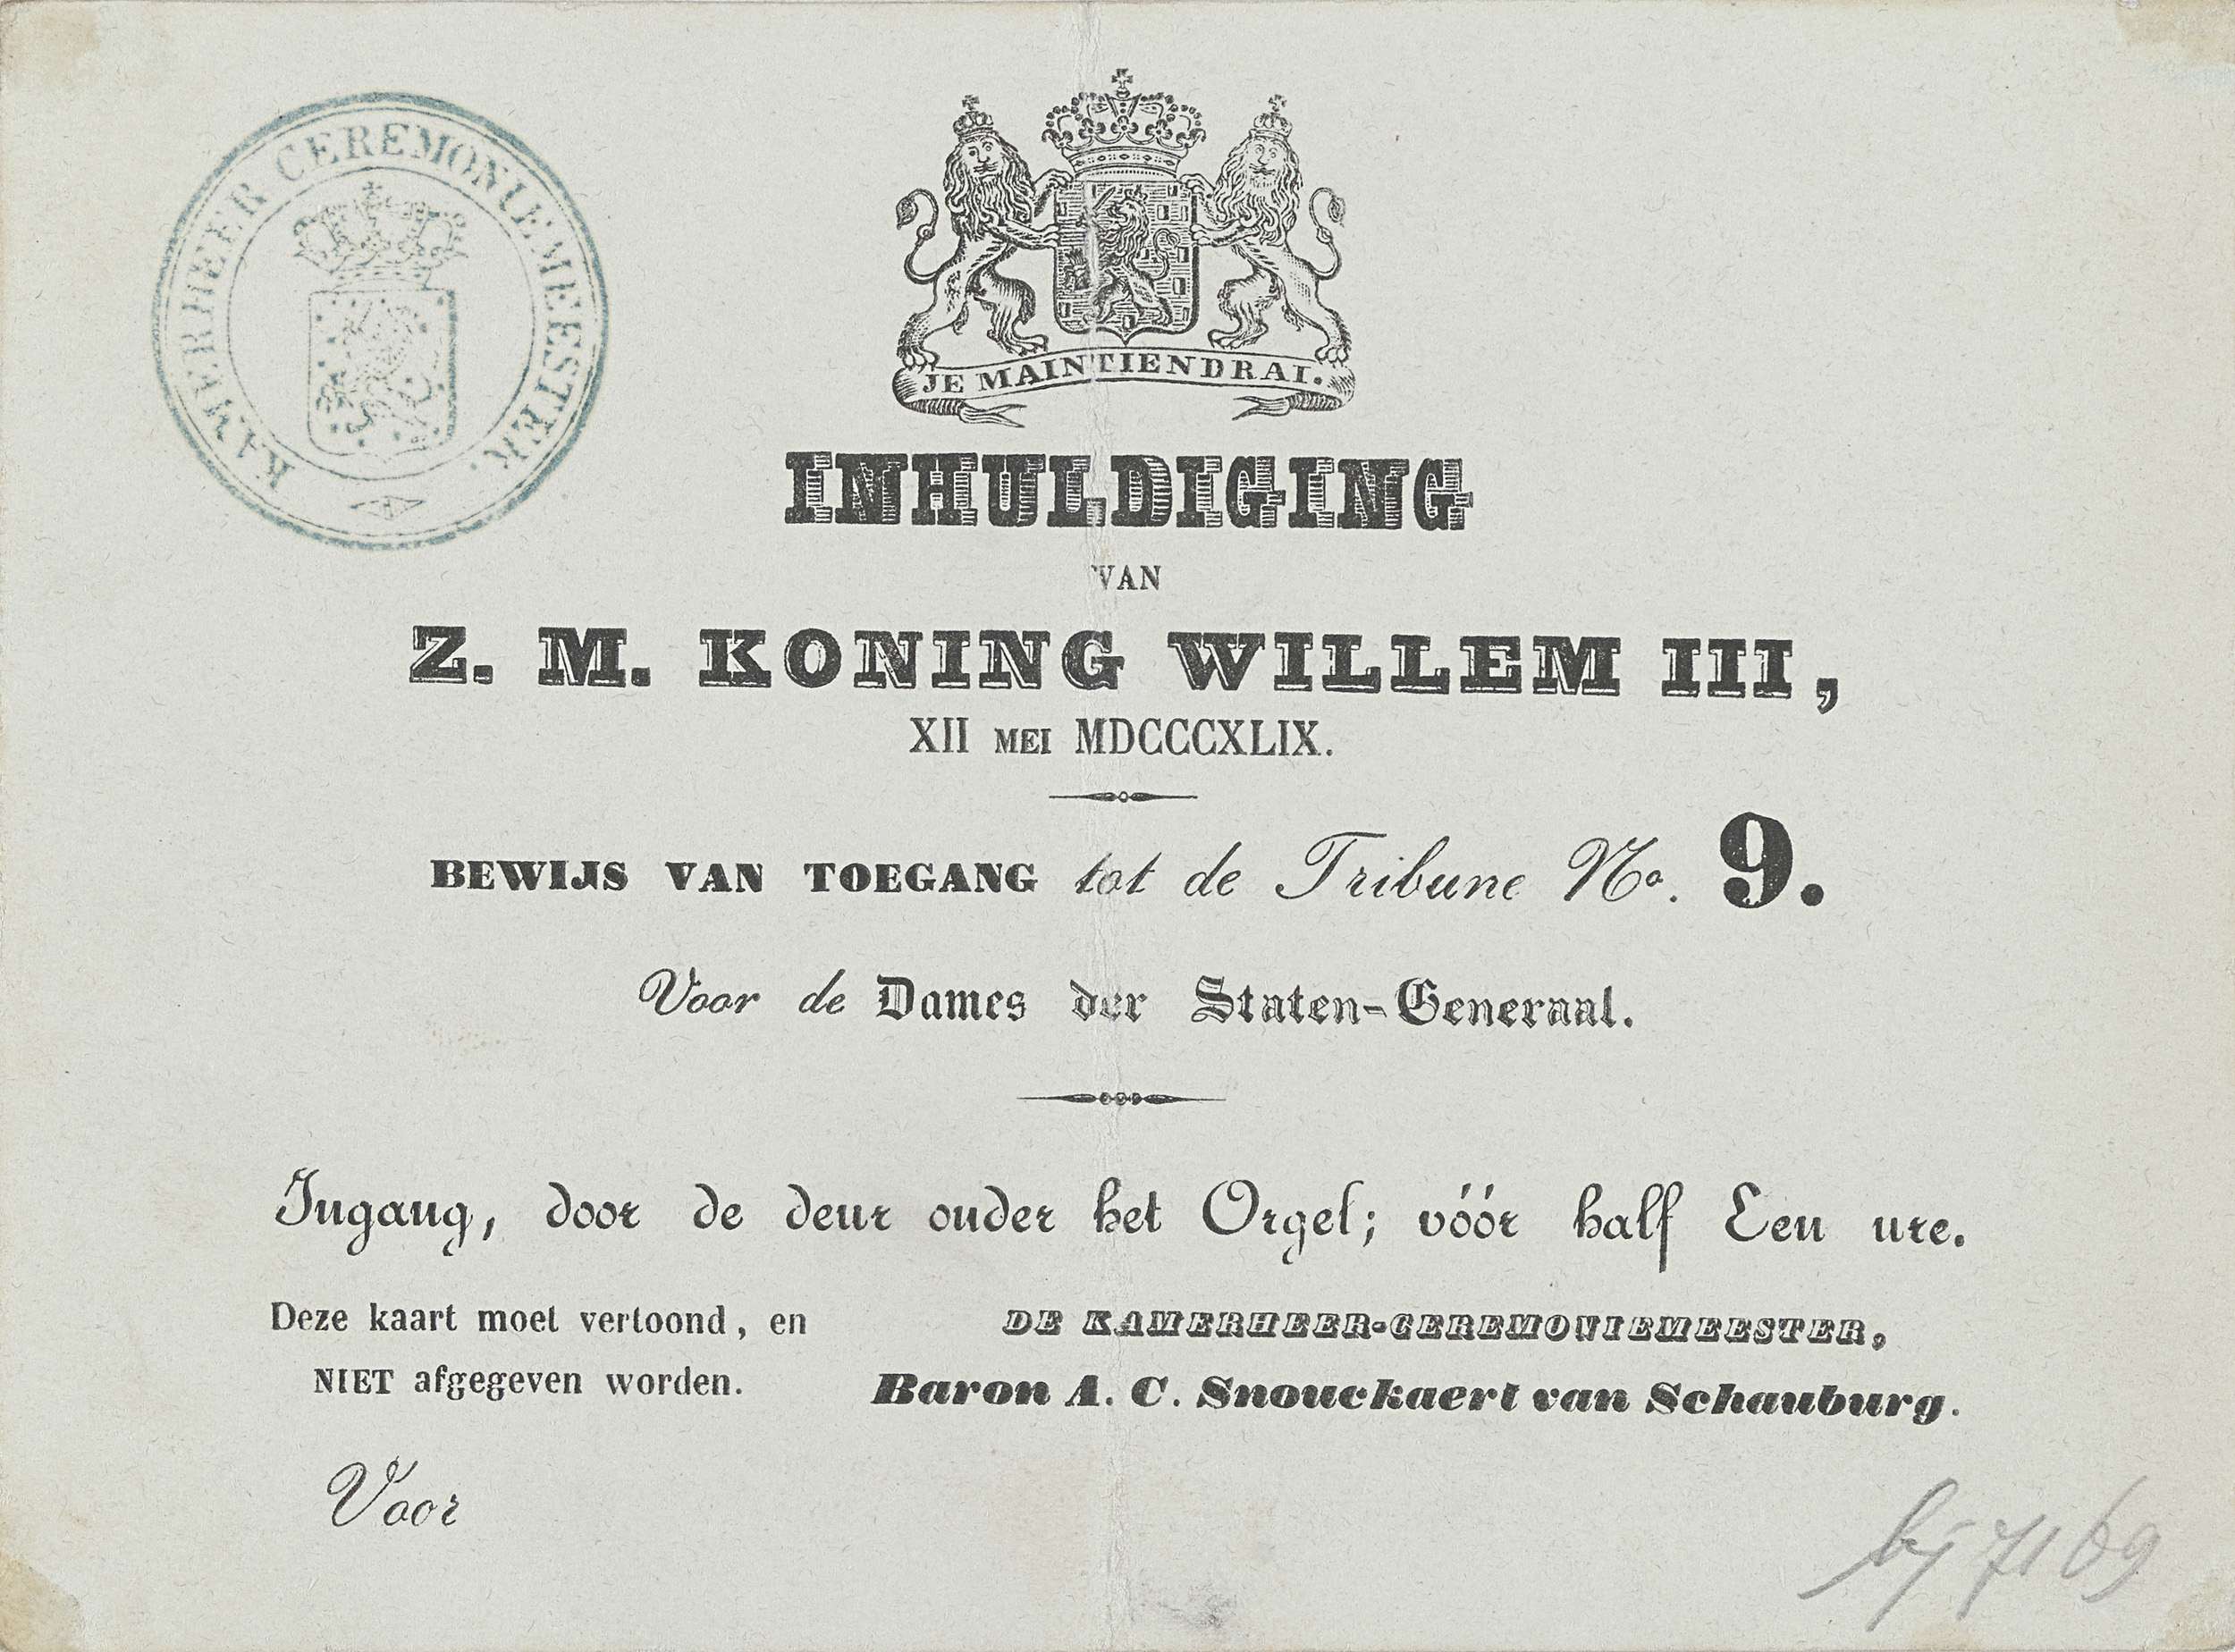 KAMERHEER CEREMONIEMEESTER.
JE MAINTIENDRAI.
INHULDIGING
VAN
Z. M. KONING WILLEM III,
XII MEI MDCCCXLIX.
BEWIJS VAN TOEGANG tot de Tribune No. 9.
Voor de Dames der Staten-Generaal.
Ingang, door de deur onder het Orgel; vóór half Een ure.
Deze kaart moet vertoond, en
NIET afgegeven worden.
DE KAMERHEER-CEREMONIEMEESTER,
Baron A. C. Snouckaert van Schauburg.
Voor
bij 7169